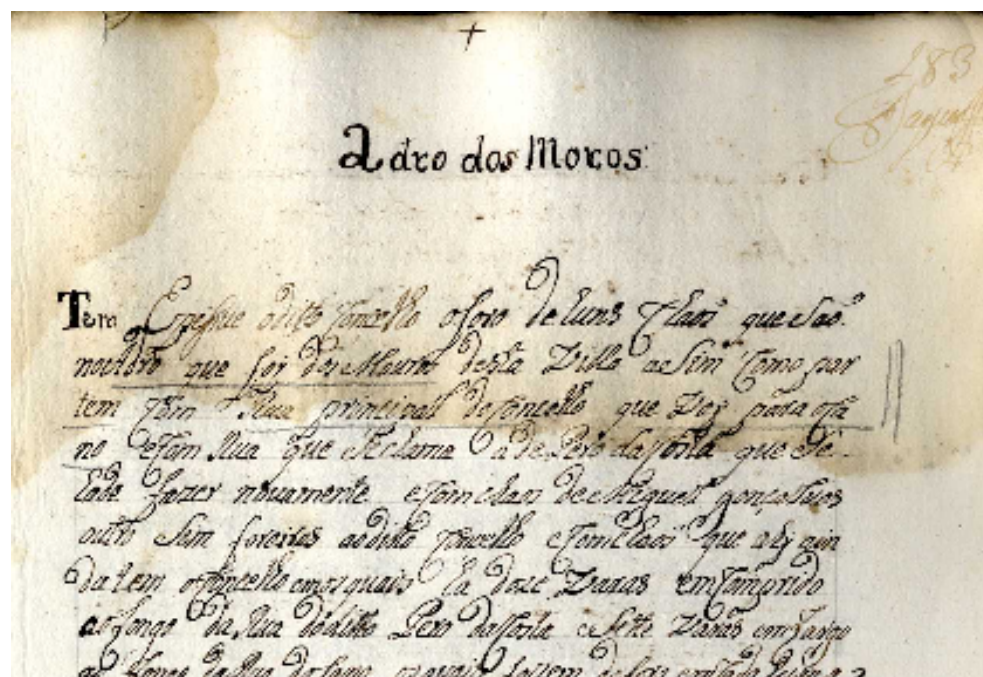 +
183
Adro dos Moros
Tem E pessue o dito Concello o foro de huns chaos que são
no adro que foi dos Mouros desta Villa asim como par
tem com Rua principal do concello que vay para
no e com Rua que se chama a de Pero da Costa que se
hade fazer novamente e com chan de Miguel gonçalves
outro sim foreiros ao dito concello e com chaos que aly ain
da tem o concello em os quais ha doze varas em comprido
ao longo da Rua do dito Pero da Costa e sette varas em largo
ao longo da Rua